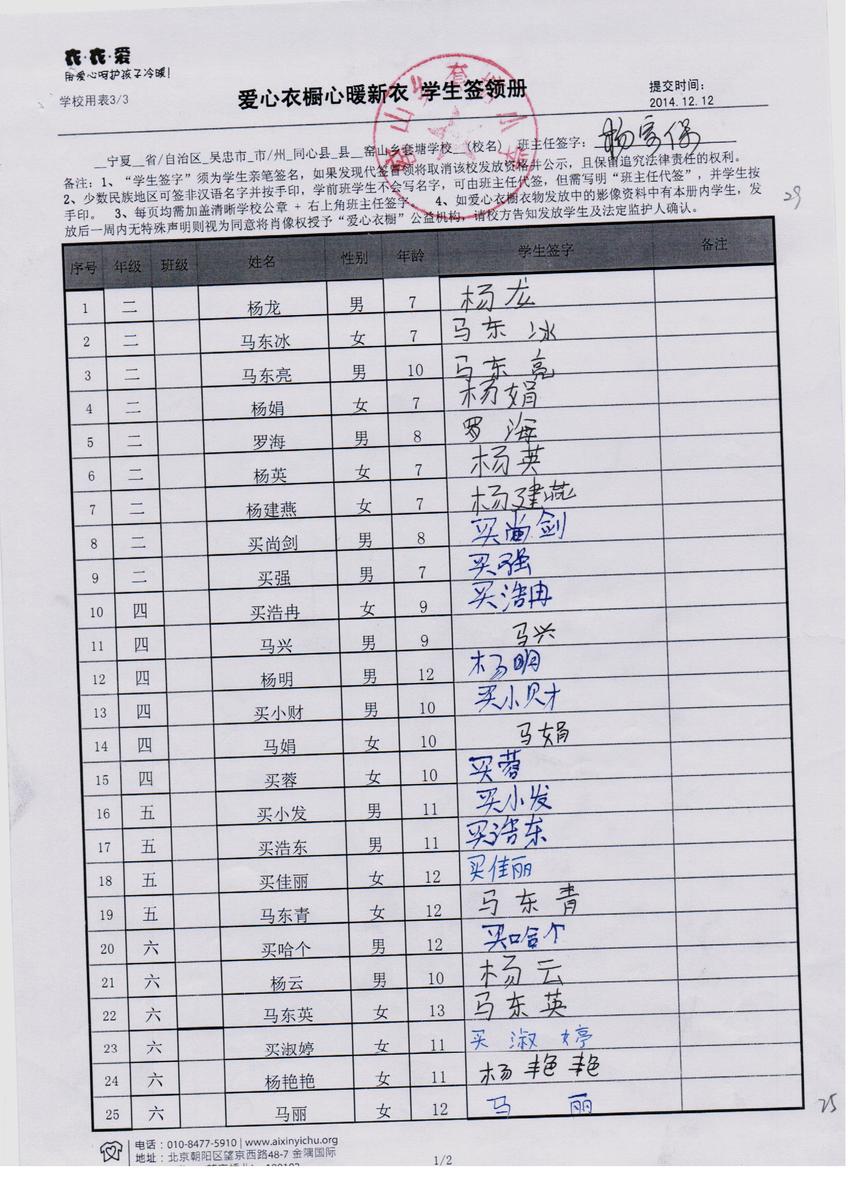 衣·衣·爱
用爱心呵护孩子冷暖!
学校用表3/3
爱心衣橱心暖新衣 学生签领册
提交时间:
2014.12.12
__宁夏__省/自治区_吴忠市_市/州_同心县_县__窑山乡套塘学校__(校名) 班主任签字:
备注:1、“学生签字”须为学生亲笔签名,如果发现代签冒领将取消该校发放资格并公示,且保留追究法律责任的权利。
2、少数民族地区可签非汉语名字并按手印,学前班学生不会写名字,可由班主任代签,但需写明“班主任代签”,并学生按
手印。 3、每页均需加盖清晰学校公章 + 右上角班主任签字。 4、如爱心衣橱衣物发放中的影像资料中有本册内学生,发
放后一周内无特殊声明则视为同意将肖像权授予“爱心衣橱”公益机构,请校方告知发放学生及法定监护人确认。
29
序号 年级 班级 姓名 性别 年龄 学生签字 备注
1 二 杨龙 男 7 杨龙
2 二 马东冰 女 7 马东冰
3 二 马东亮 男 10 马东亮
4 二 杨娟 女 7 杨娟
5 二 罗海 男 8 罗海
6 二 杨英 女 7 杨英
7 二 杨建燕 女 7 杨建燕
8 二 买尚剑 男 8 买尚剑
9 二 买强 男 7 买强
10 四 买浩冉 女 9 买浩冉
11 四 马兴 男 9 马兴
12 四 杨明 男 12 杨明
13 四 买小财 男 10 买小财
14 四 马娟 女 10 马娟
15 四 买蓉 女 10 买蓉
16 五 买小发 男 11 买小发
17 五 买浩东 男 11 买浩东
18 五 买佳丽 女 12 买佳丽
19 五 马东青 女 12 马东青
20 六 买哈个 男 12 买哈个
21 六 杨云 男 10 杨云
22 六 马东英 女 13 马东英
23 六 买淑婷 女 11 买淑婷
24 六 杨艳艳 女 11 杨艳艳
25 六 马丽 女 12 马丽
25
电话:010-8477-5910 | www.aixinyichu.org
地址:北京朝阳区望京西路48-7 金隅国际
1/2